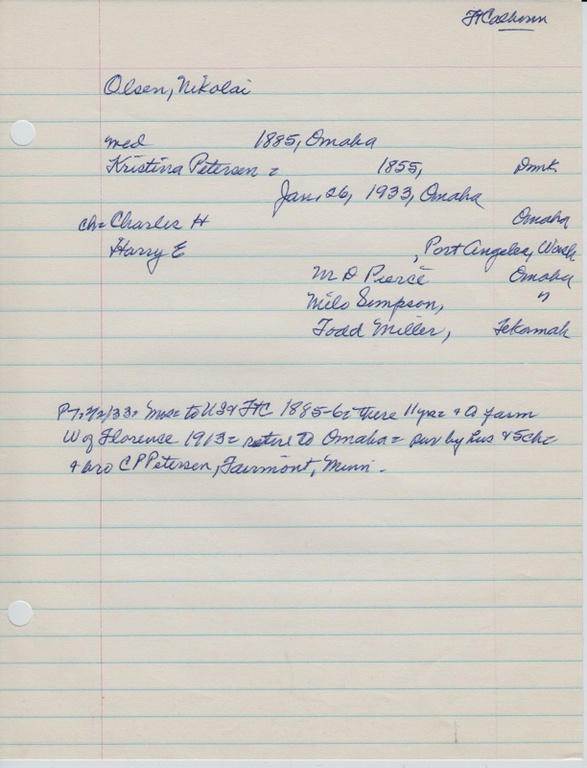 Ft Calhoun
Olsen, Nikolai
med 1885, Omaha
Kristina Petersen = 1855, Dmk
Jan. 26, 1933, Omaha
ch= Charles H Omaha
Harry E , Port Angeles, Wash
M D Pierce Omaha
Milo Simpson, "
Todd Miller, Tekamah
PT, 2/2/33= Mrs= to US & FtC 1885-6= there 11 yrs= & a farm
W of Florence 1913= retire to Omaha= sur by hus & 5 ch=
& bro C P Petersen, Fairmont, Minn.